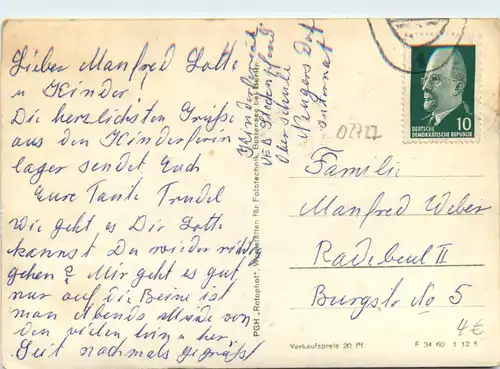 Lieber Manfred Lotte
u Kinder!
Die herzlichsten Grüße
aus den Kinderferien
lager sendet Euch
Eure Tante Trudel
Wie geht es Dir Lotte
kannst Du wieder richtig
gehen? Mir geht es gut
nur auf die Beine ist
man Abends müde von
den vielen hin u her,
Seit nochmals gegrüßt
Kinderferienl.
VEB
Oberschule
Internat
PGH „Rotophot“, Werkstätten für Fototechnik, Bestensee bei Berlin
10
DEUTSCHE
DEMOKRATISCHE REPUBLIK
Familie
Manfred Weber
Radebeul II
Burgstr No 5
4€
Verkaufspreis 20 Pf.
F 34 60 1 12 5